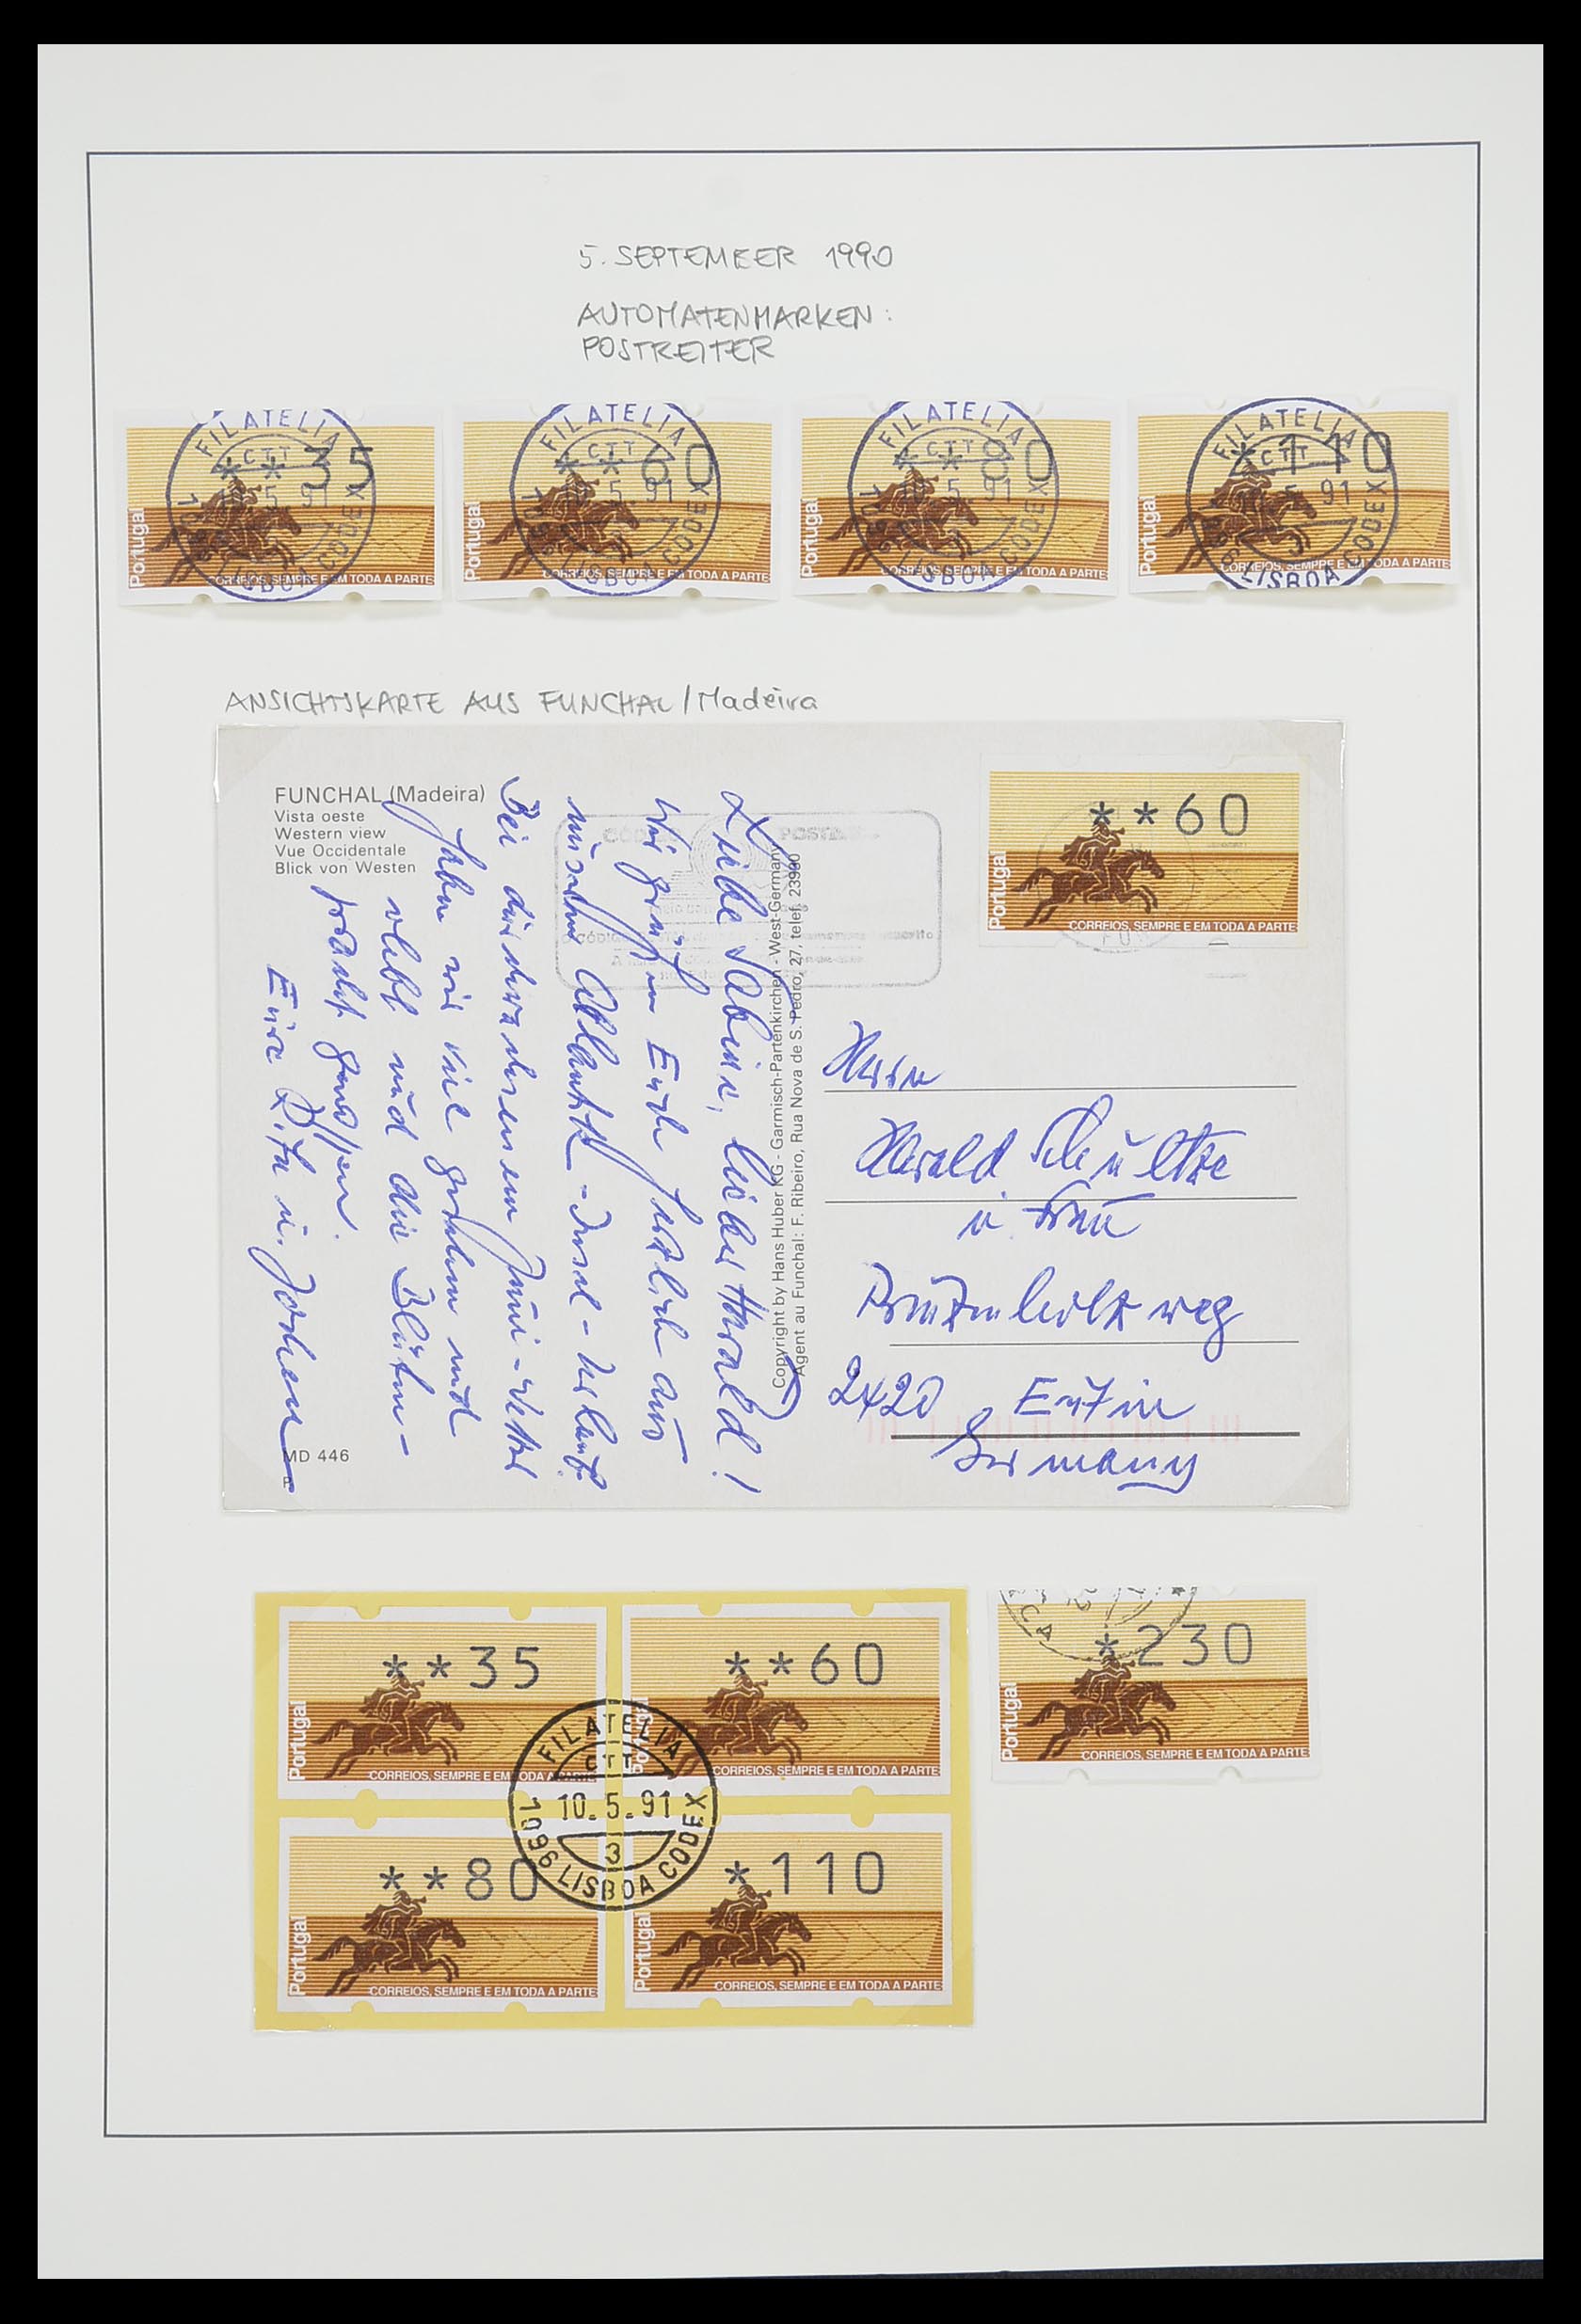 5. SEPTEMBER 1990
AUTOMATENMARKEN:
POSTREITER
FILATELIA
CTT
* * 35
5 91
1096 LISBOA CODEX
Portugal
CORREIOS, SEMPRE E EM TODA A PARTE
FILATELIA
CTT
* * 60
5 91
1096 LISBOA CODEX
Portugal
CORREIOS, SEMPRE E EM TODA A PARTE
FILATELIA
CTT
* * 80
5 91
1096 LISBOA CODEX
Portugal
CORREIOS, SEMPRE E EM TODA A PARTE
FILATELIA
CTT
* 110
91
1096 LISBOA CODEX
Portugal
CORREIOS, SEMPRE E EM TODA A PARTE
ANSICHTSKARTE AUS FUNCHAL / Madeira
FUNCHAL (Madeira)
Vista oeste
Western view
Vue Occidentale
Blick von Westen
CÓDIGO POSTAL
**60
Portugal
CORREIOS, SEMPRE E EM TODA A PARTE
FU
Liebe Sabine, lieber Harald!
Wir grüßen Euch herzlich aus
unserem Atlantik-Insel-Urlaub.
Bei
haben wir viel gesehen und
erlebt und die Blüten-
pracht genossen.
Eure Rita u. Jochen
Copyright by Hans Huber KG - Garmisch-Partenkirchen - West-Germany
Agent au Funchal: F. Ribeiro, Rua Nova de S. Pedro, 27, telef. 23930
MD 446
Herrn
Harald Schultze
u. Frau
2420 Eutin
Germany
**35
Portugal
CORREIOS, SEMPRE E EM TODA A PARTE
**60
Portugal
CORREIOS, SEMPRE E EM TODA A PARTE
FILATELIA
CTT
10.5.91
3
1096 LISBOA CODEX
**80
Portugal
CORREIOS, SEMPRE E EM TODA A PARTE
*110
Portugal
CORREIOS, SEMPRE E EM TODA A PARTE
*230
Portugal
CORREIOS, SEMPRE E EM TODA A PARTE